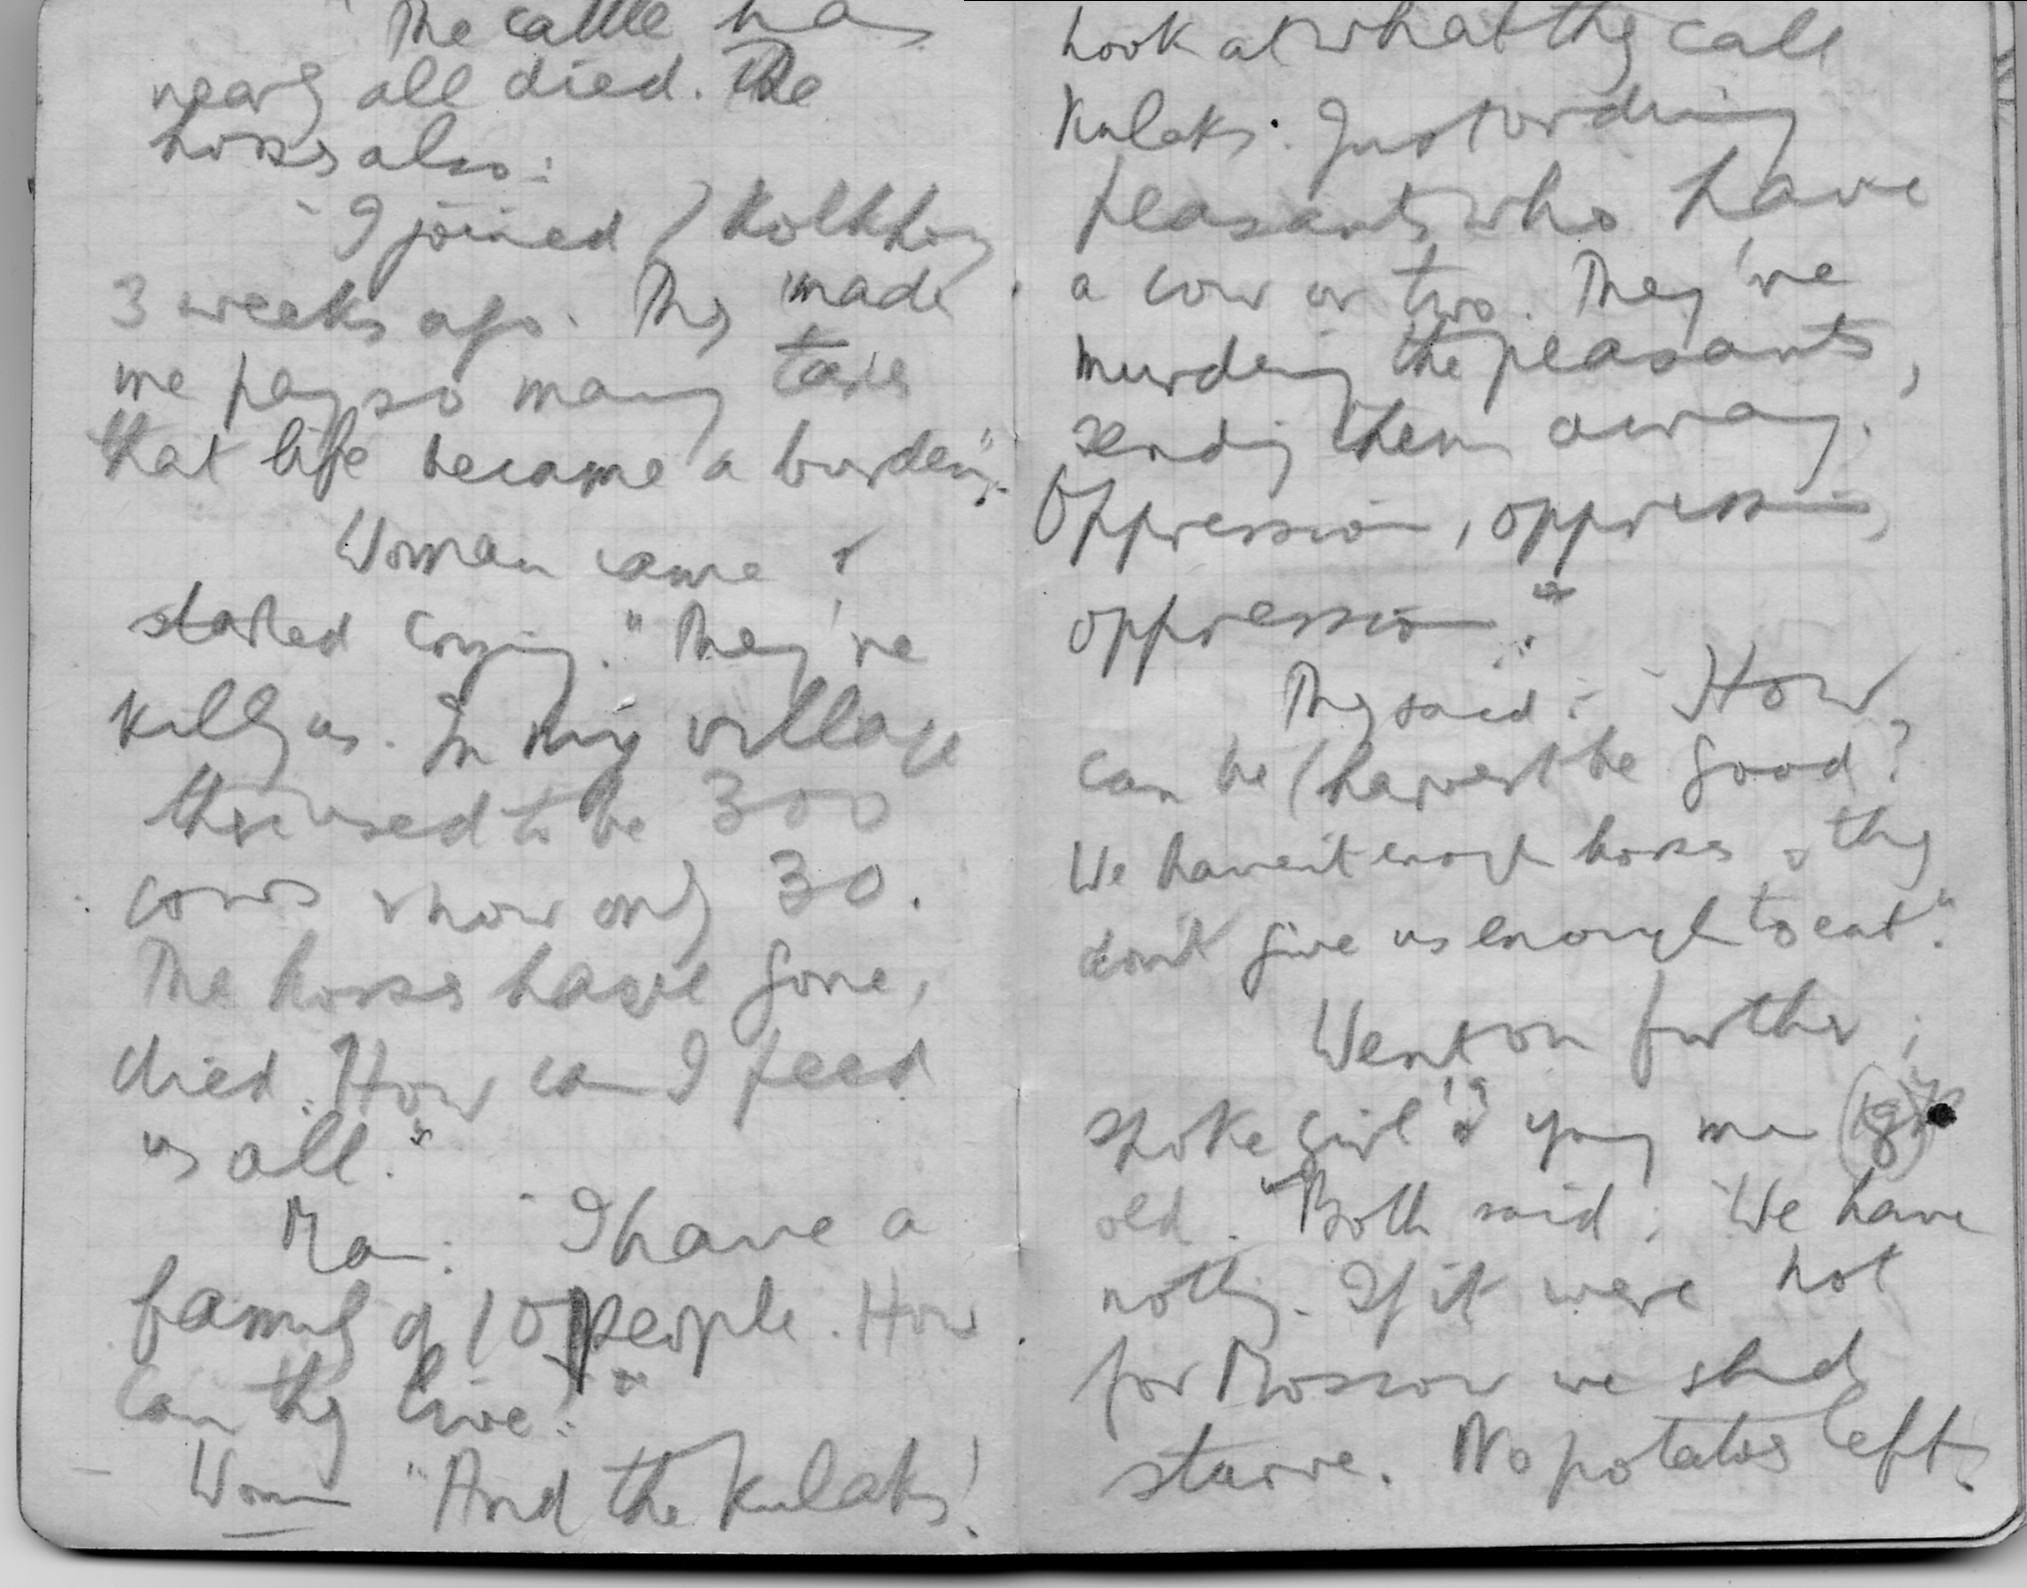 "The cattle has
nearly all died. The
horses also.
"I joined / Kolkhoz
3 weeks ago. They made
me pay so many taxes
that life became a burden".
Woman came &
started crying. "They're
killing us. In my village
there used to be 300
cows & now only 30.
The horses have gone,
died. How can I feed
us all."
Man: "I have a
family of 10 people. How
can they live?"
Woman "And the Kulaks!
Look at what they call
Kulaks. Just ordinary
peasants who have
a cow or two. They're
murdering the peasants,
sending them away.
Oppression, oppression,
oppression."
They said: "How
can be / harvest be good?
We haven't enough horses & they
don't give us enough to eat".
Went on further;
spoke girl & young man (18
old. "Both said: "We have
nothing. If it were not
for Moscow we shd
starve. No potatoes left.